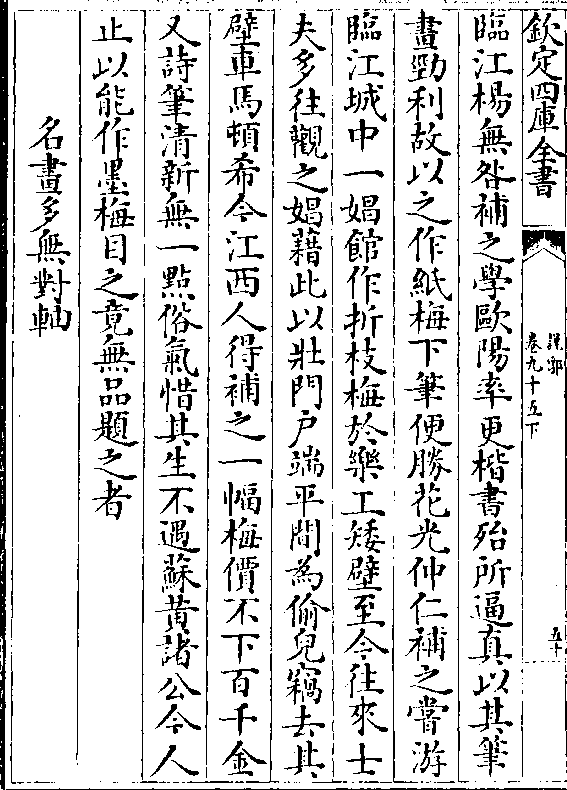 欽定四庫全書
說郛
卷九十五下
五十
臨江楊無咎補之學歐陽率更楷書殆所逼真以其筆
畫勁利故以之作紙梅下筆便勝花光仲仁補之嘗游
臨江城中一娼館作折枝梅於樂工矮壁至今往來士
夫多往觀之娼藉此以壯門户端平間為偷兒竊去其
壁車馬頓希今江西人得補之一幅梅價不下百千金
又詩筆清新無一點俗氣惜其生不遇蘇黃諸公今人
止以能作墨梅目之竟無品題之者
名畫多無對軸